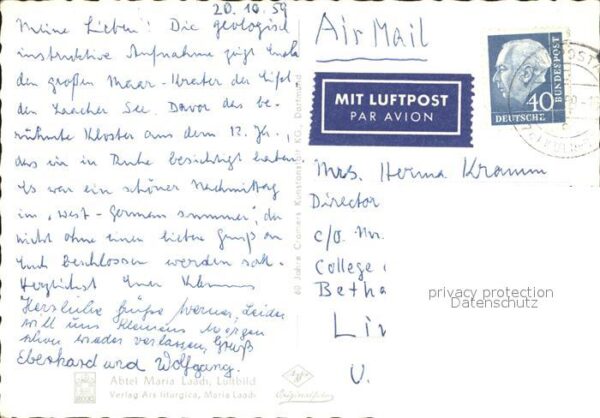 20.10.59
Meine Lieben! Die geologisch
instruktive Aufnahme zeigt Euch
den großen Maar-Krater der Eifel
den Laacher See. Davor das be-
rühmte Kloster aus dem 12. Jh.,
das wir in Ruhe besichtigt haben
Es war ein schöner Nachmittag
im „West-German summer", der
nicht ohne einen lieben Gruß an
Euch beschlossen werden soll.
Herzlichst Euer Klemens
Herzliche Grüße Werner, Leider
will uns Klemens morgen
schon wieder verlassen, Gruß
Eberhard und Wolfgang.
Abtei Maria Laach, Luftbild
Verlag Ars liturgica, Maria Laach
60 Jahre Cramers Kunstanstalt KG., Dortmund
Originalfoto
Air Mail
MIT LUFTPOST
PAR AVION
40
DEUTSCHE
BUNDESPOST
Mrs. Herma Kramm
Director
c/o.
College
Betha
Lin
U.
privacy protection
Datenschutz